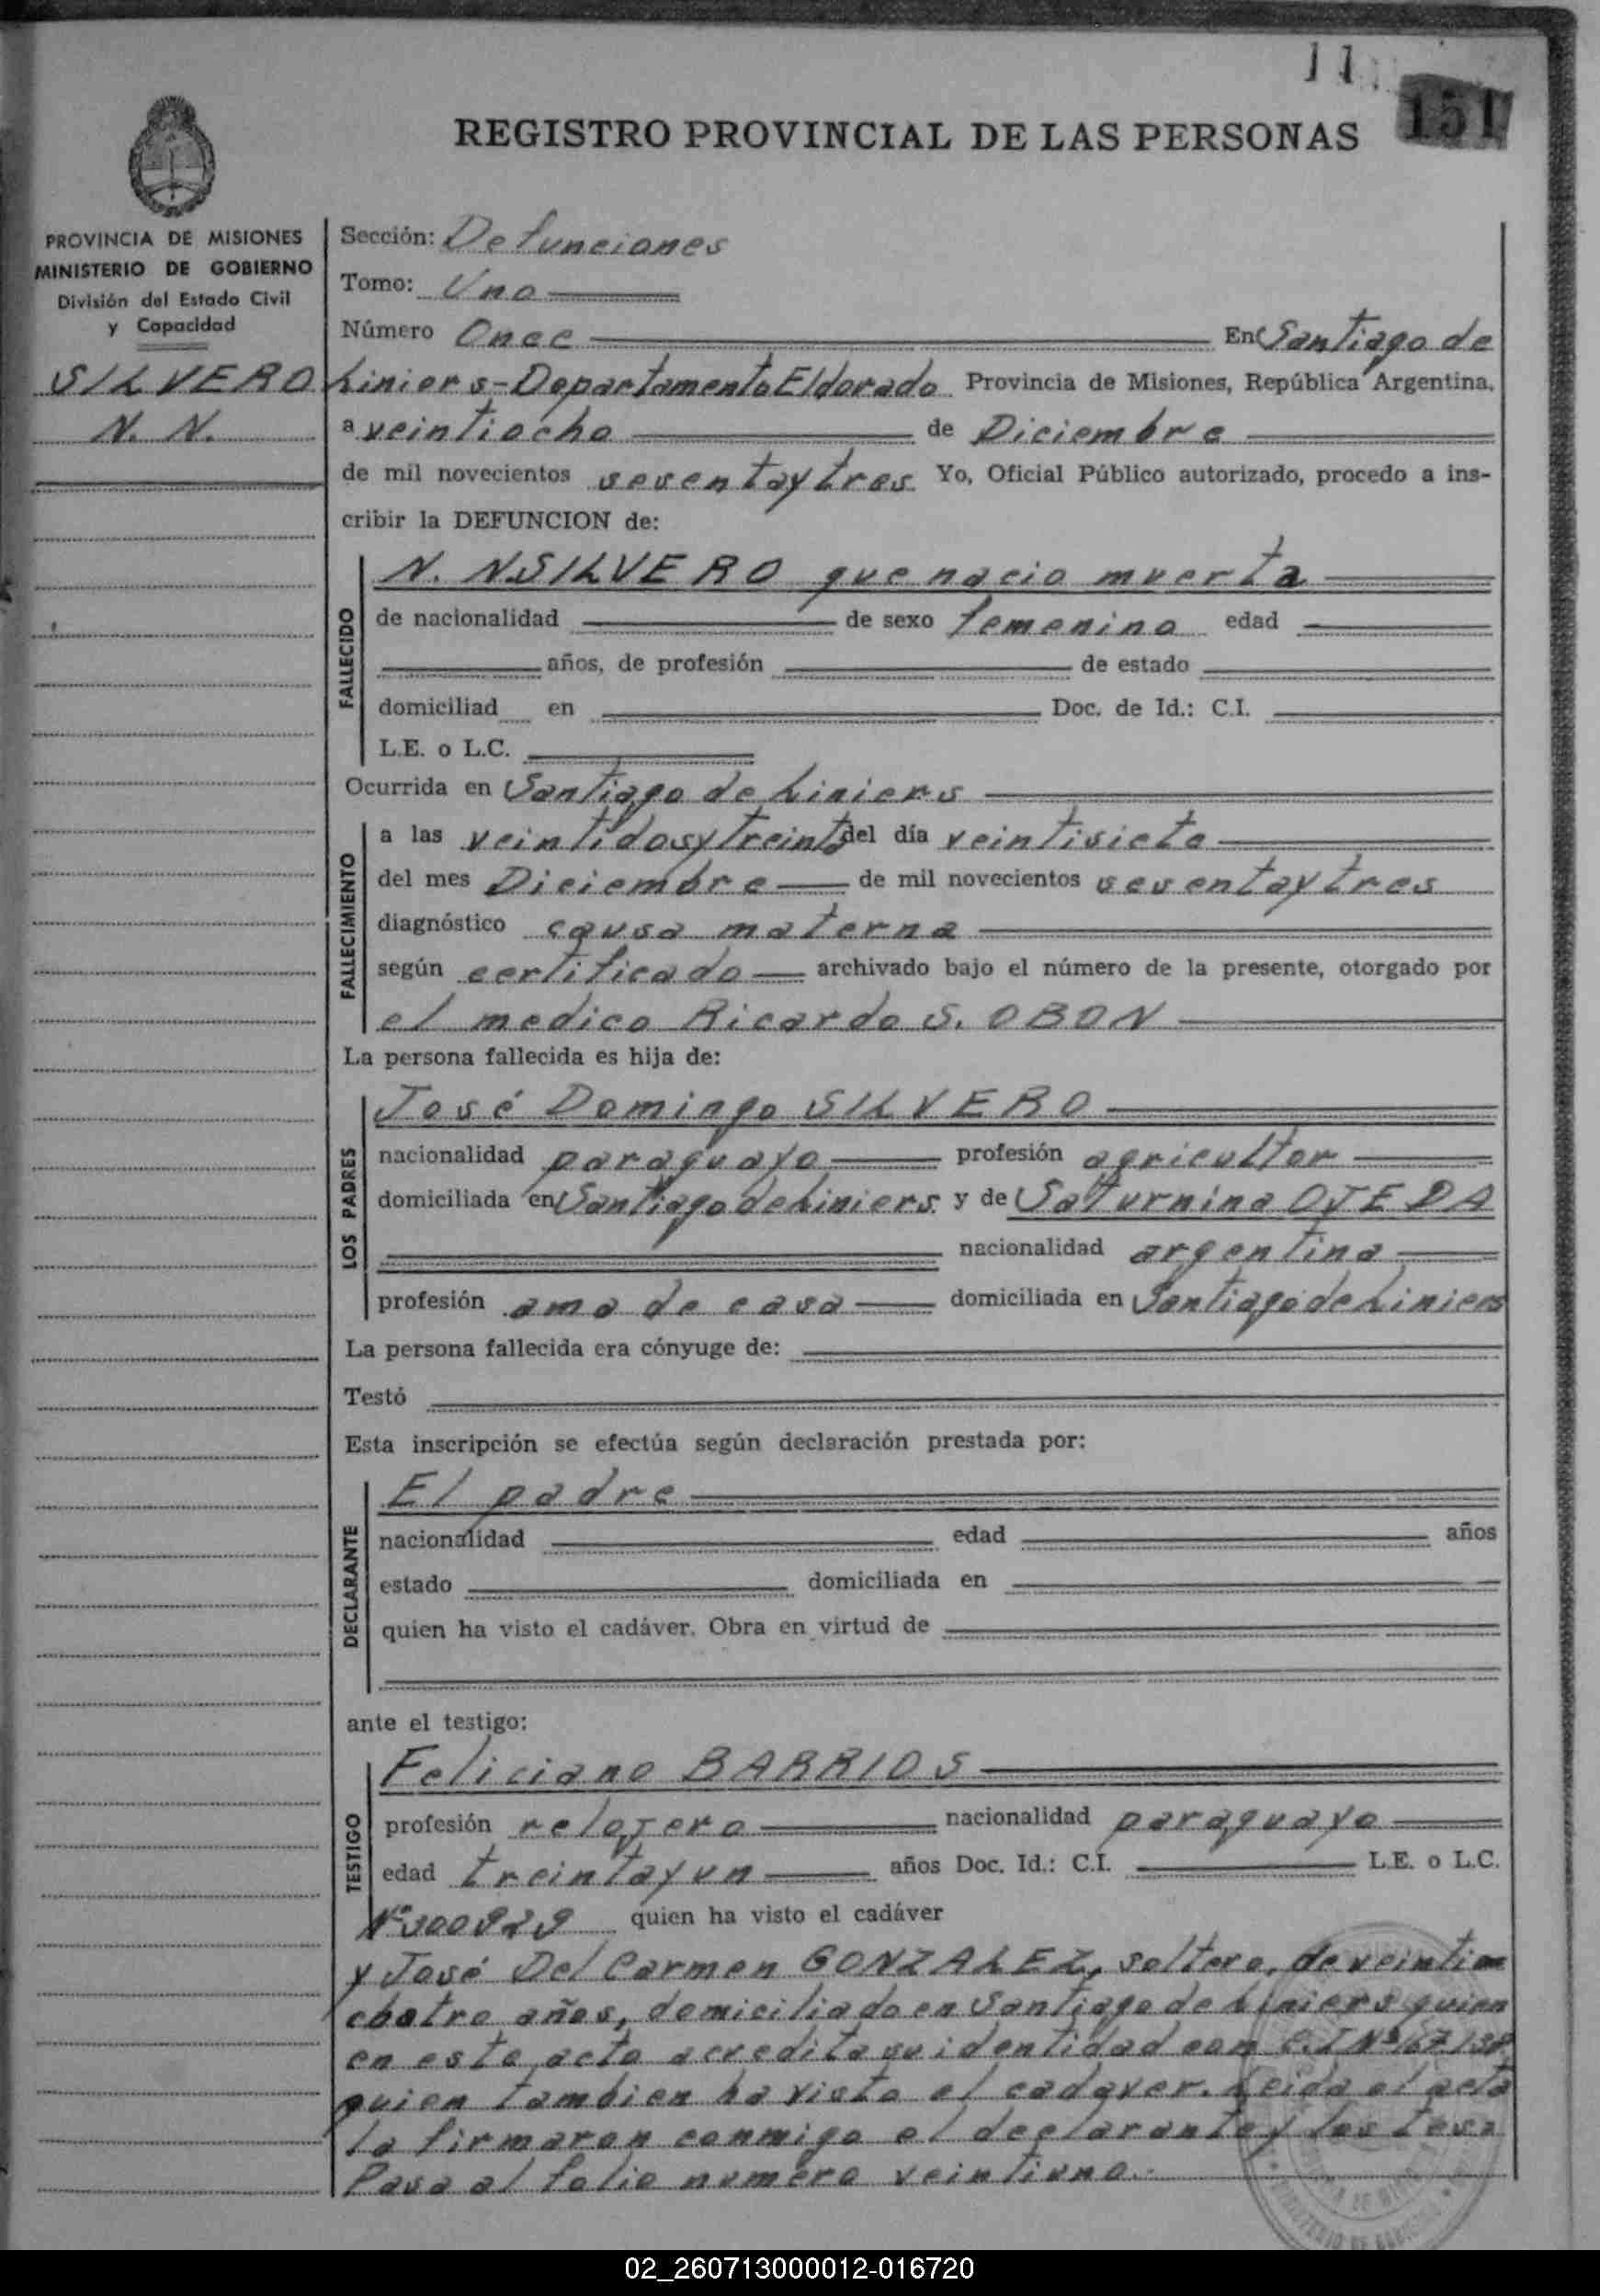 11
151
REGISTRO PROVINCIAL DE LAS PERSONAS
PROVINCIA DE MISIONES
MINISTERIO DE GOBIERNO
División del Estado Civil
y Capacidad
SILVERO
N. N.
Sección: Defunciones
Tomo: Uno
Número Once En Santiago de
Liniers-Departamento Eldorado Provincia de Misiones, República Argentina,
a veintiocho de Diciembre
de mil novecientos sesentaytres Yo, Oficial Público autorizado, procedo a ins-
cribir la DEFUNCION de:
FALLECIDO
N. N SILVERO que nacio muerta
de nacionalidad de sexo femenino edad
años, de profesión de estado
domiciliad en Doc. de Id.: C.I.
L.E. o L.C.
Ocurrida en Santiago de Liniers
FALLECIMIENTO
a las veintidosytreinta del día veintisiete
del mes Diciembre de mil novecientos sesentaytres
diagnóstico causa materna
según certificado archivado bajo el número de la presente, otorgado por
el medico Ricardo S. OBON
La persona fallecida es hija de:
LOS PADRES
José Domingo SILVERO
nacionalidad paraguayo profesión agricultor
domiciliada en Santiago de Liniers y de Saturnina OJEDA
nacionalidad argentina
profesión ama de casa domiciliada en Santiago de Liniers
La persona fallecida era cónyuge de:
Testó
Esta inscripción se efectúa según declaración prestada por:
DECLARANTE
El padre
nacionalidad edad años
estado domiciliada en
quien ha visto el cadáver. Obra en virtud de
ante el testigo:
TESTIGO
Feliciano BARRIOS
profesión relojero nacionalidad paraguayo
edad treintayun años Doc. Id.: C.I. L.E. o L.C.
Nº 300929 quien ha visto el cadáver
y José Del Carmen GONZALEZ, soltero, de veinti
cuatro años, domiciliado en Santiago de Liniers quien
en este acto acredita su identidad con C.I Nº
quien tambien ha visto el cadaver. Leida el acta
la firmaron conmigo el declarante y los tes
Pasa al folio numero veintiuno.
02_260713000012-016720